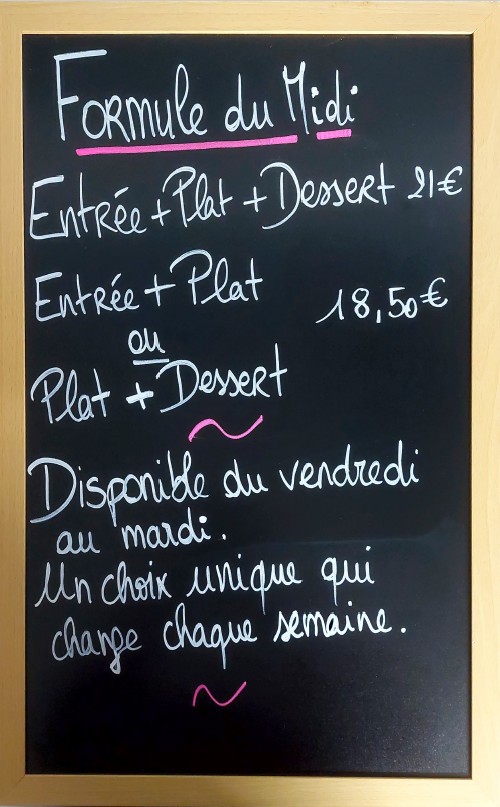 Formule du Midi
Entrée + Plat + Dessert 21€
Entrée + Plat
18,50€
ou
Plat + Dessert
Disponible du vendredi
au mardi.
Un choix unique qui
change chaque semaine.